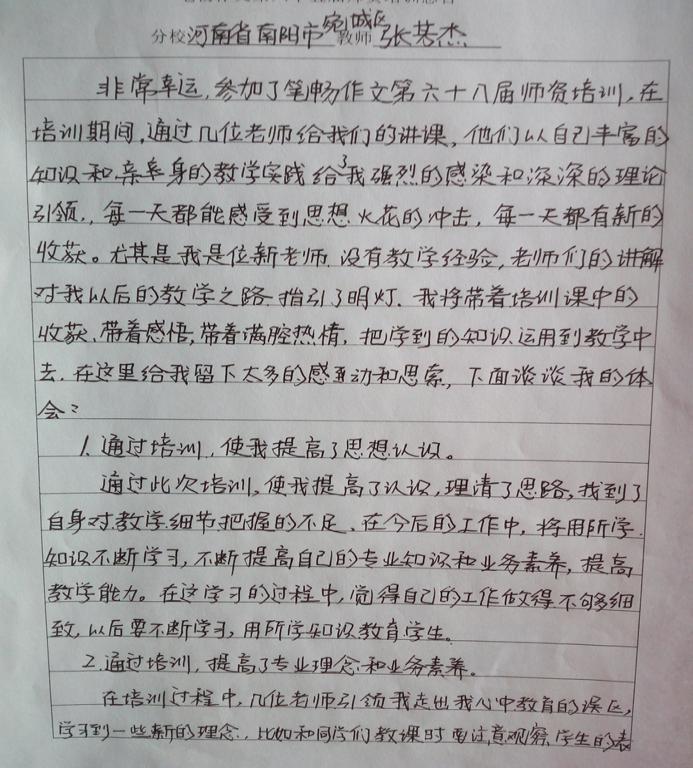 分校河南省南阳市宛城区教师张若杰
非常幸运,参加了笔畅作文第六十八届师资培训,在
培训期间,通过几位老师给我们的讲课,他们以自己丰富的
知识和亲身的教学实践给了我强烈的感染和深深的理论
引领,每一天都能感受到思想火花的冲击,每一天都有新的
收获。尤其是我是位新老师.没有教学经验,老师们的讲解
对我以后的教学之路指引了明灯.我将带着培训课中的
收获、带着感悟,带着满腔热情,把学到的知识运用到教学中
去.在这里给我留下太多的感动和思索,下面谈谈我的体
会:
1.通过培训,使我提高了思想认识。
通过此次培训,使我提高了认识,理清了思路,找到了
自身对教学细节把握的不足.在今后的工作中,将用所学
知识不断学习,不断提高自己的专业知识和业务素养,提高
教学能力。在这学习的过程中,觉得自己的工作做得不够细
致,以后要不断学习,用所学知识教育学生。
2.通过培训,提高了专业理念和业务素养。
在培训过程中,几位老师引领我走出我心中教育的误区,
学习到一些新的理念.比如和同学们教课时要注意观察学生的表